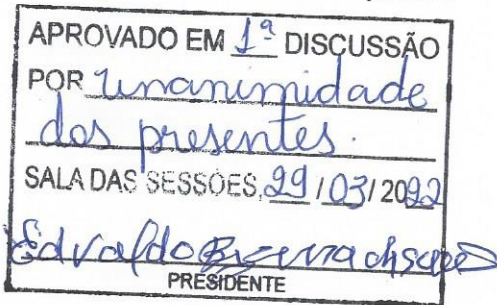 APROVADO EM 1ª DISCUSSÃO
POR Unanimidade
dos presentes.
SALA DAS SESSÕES, 29 / 03 / 2022
Edvaldo Bezerra
PRESIDENTE